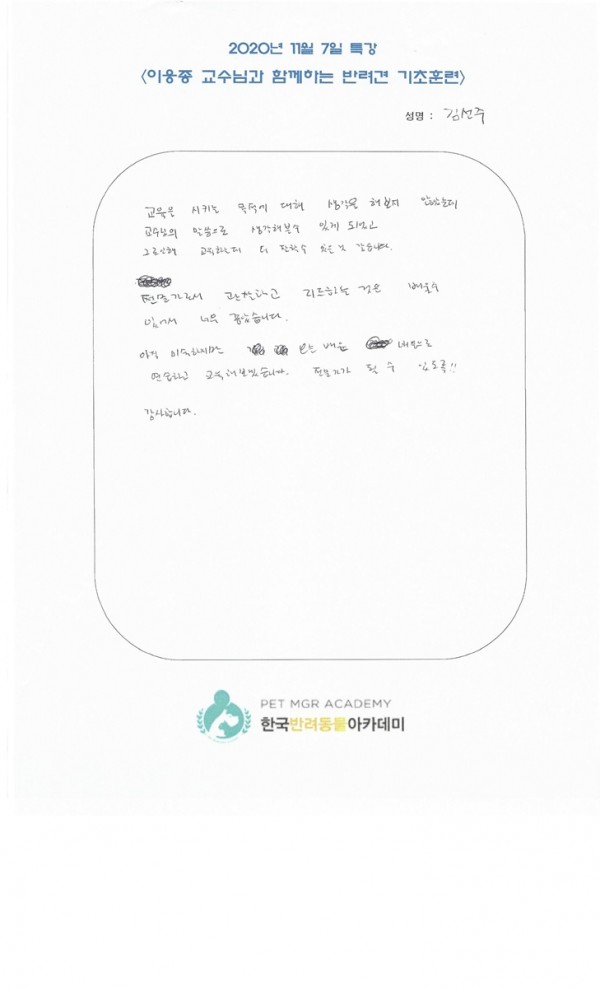 2020년 11월 7일 특강
<이웅종 교수님과 함께하는 반려견 기초훈련>
성명 : 김선주
교육을 시키는 목적에 대해 생각을 해본적 없었는데
교수님의 말씀으로 생각해볼수 있게 되었고
그로인해 교육하는데 더 잘할수 있을 것 같습니다.
전문가로서 관찰하고 리드하는 것을 배울수
있어서 너무 좋았습니다.
아직 미숙하지만 오늘 배운 내용으로
연습하고 교육해보겠습니다. 전문가가 될 수 있도록!!
감사합니다.
PET MGR ACADEMY
한국반려동물아카데미